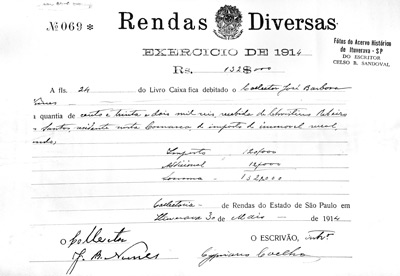 Nº 069 *
Rendas Diversas
EXERCICIO DE 1914
Rs. 132$000
Fótos do Acervo Histórico
de Ituverava - SP
DO ESCRITOR
CELSO B. SANDOVAL
A fls. 24 do Livro Caixa fica debitado o Collector José Barbosa
Nunes
a quantia de cento e trinta e dois mil reis recebida de Ribeiro
Santos, residente nesta Comarca de imposto de immovel rural
Imposto 120,000
Addicional 12,000
Somma 132,000
Collectoria de Rendas do Estado de São Paulo em
Ituverava 30 de Maio de 1914
O Collector O ESCRIVÃO, intº
J. B. Nunes Cypriano Coelho